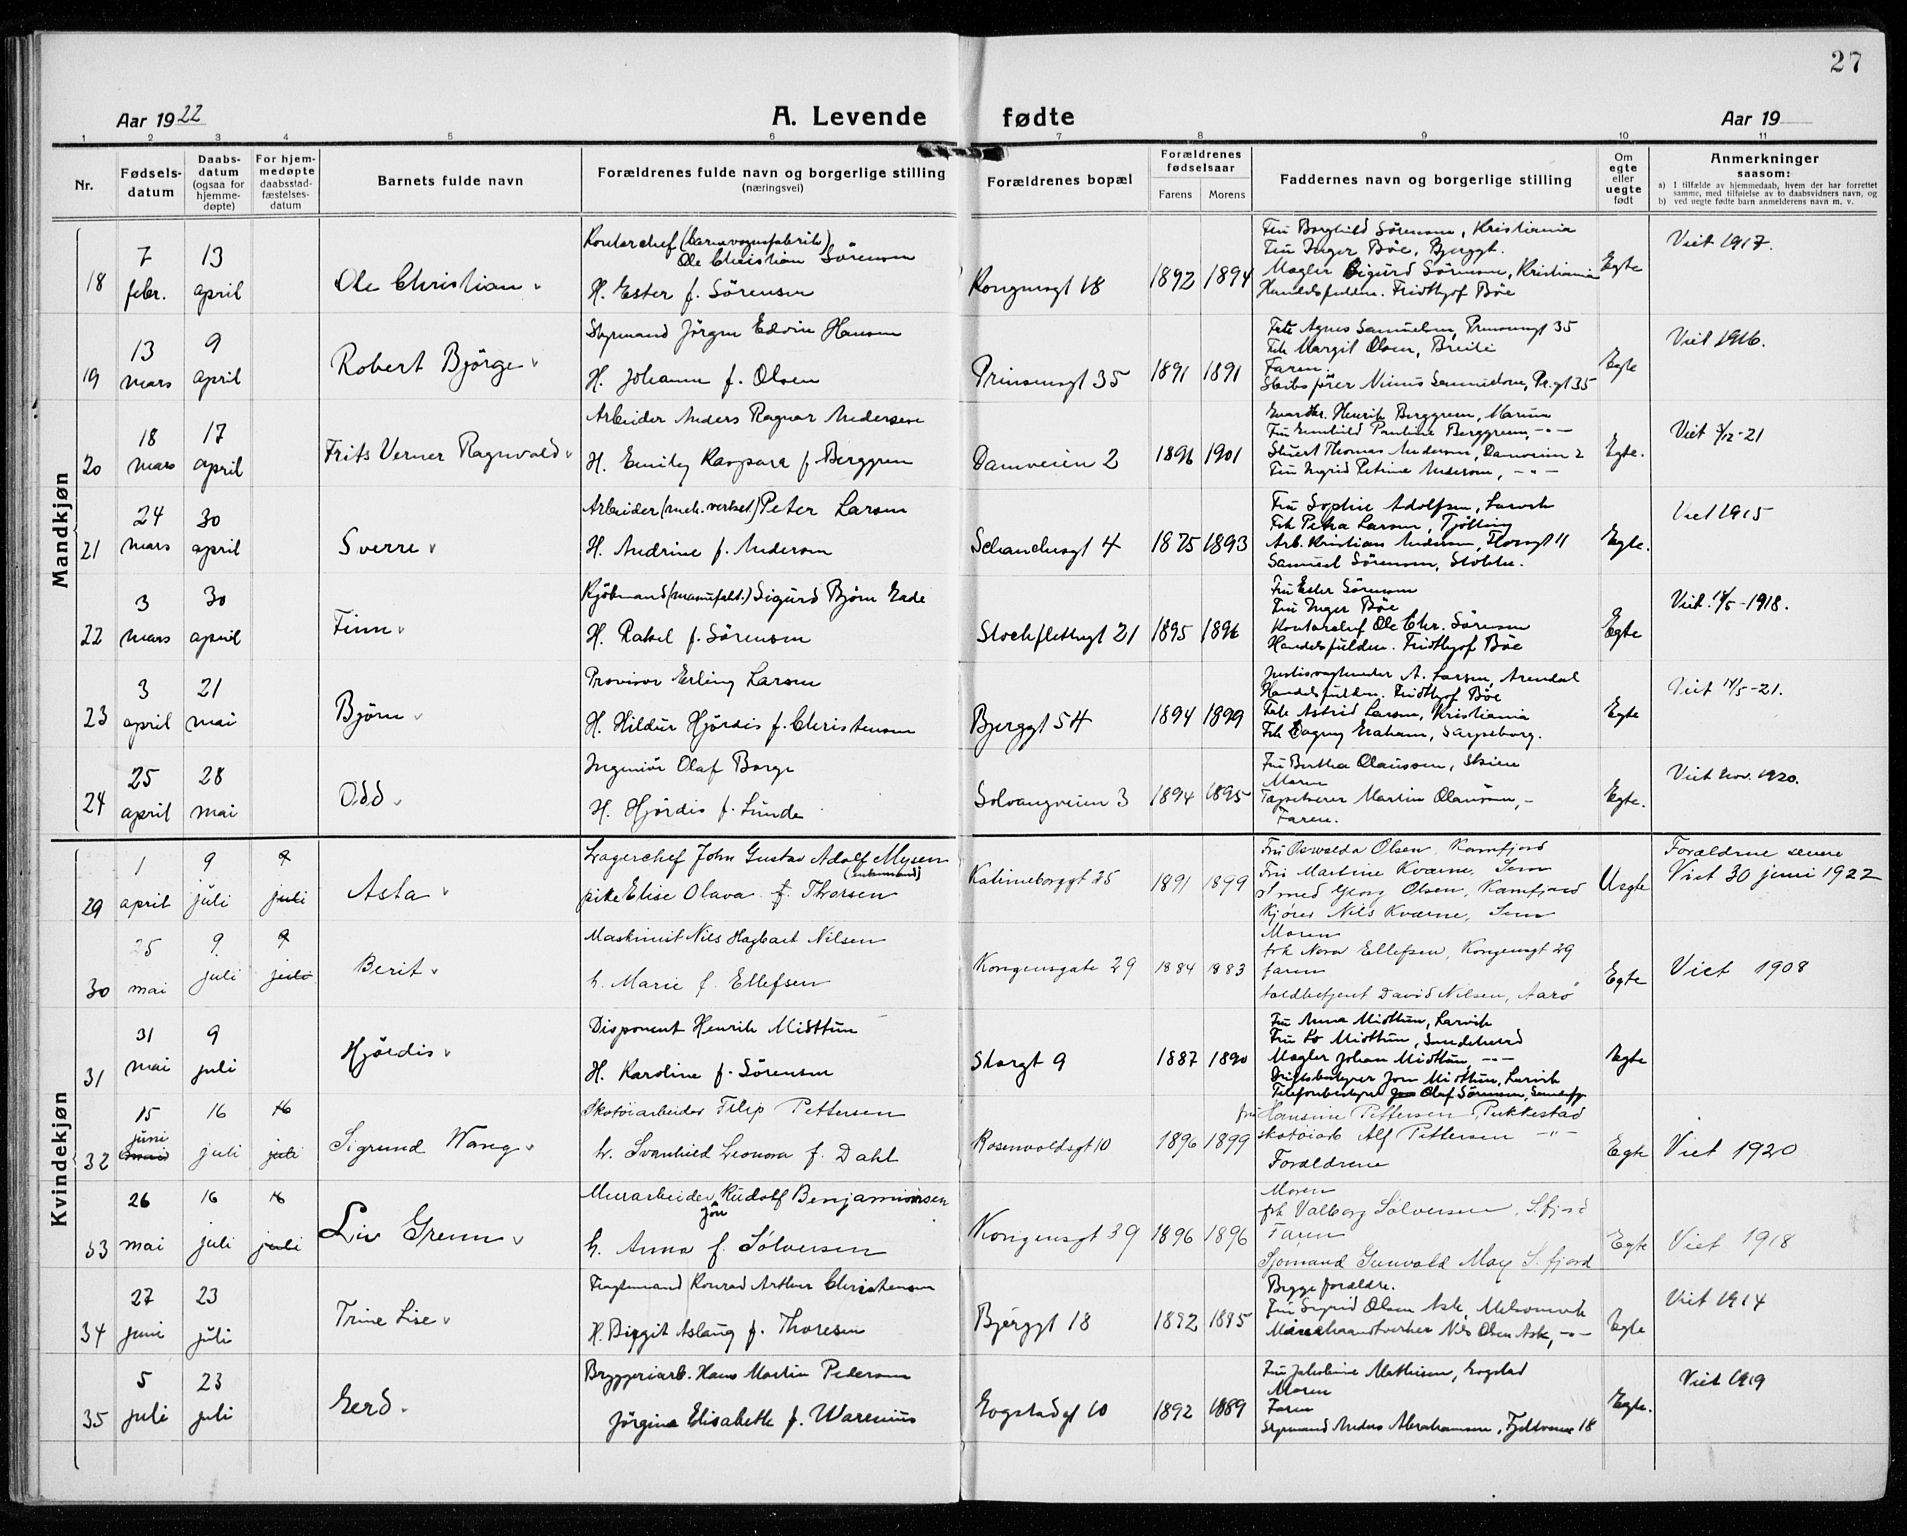 27
Aar 1922
A. Levende fødte
Aar 19
1 2 3 4 5 6 7 8 9 10 11
Nr.
Fødsels-
datum
Daabs-
datum
(ogsaa for
hjemme-
døpte)
For hjem-
medøpte
daabsstad-
fæstelses-
datum
Barnets fulde navn
Forældrenes fulde navn og borgerlige stilling
(næringsvei)
Forældrenes bopæl
Forældrenes
fødselsaar
Farens Morens
Faddernes navn og borgerlige stilling
Om
egte
eller
uegte
født
Anmerkninger
saasom:
a) I tilfælde av hjemmedaab, hvem der har forrettet
samme, med tilføielse av to daabsvidners navn, og
b) ved uegte fødte barn anmelderens navn m. v.
Mandkjøn
18
7 febr.
13 april
Ole Christian
Kontorchef (barnevognfabrik)
Ole Christian Sörensen
H. Ester f. Sörensen
Kongensgt 18
1892 1894
Fru Borghild Sörensen, Kristiania
Fru Inger Böe, Bjerggt.
Mægler Sigurd Sörensen, Kristiania
Handelsfuldm. Fridthjof Böe
Egte
Viet 1917.
19
13 mars
9 april
Robert Bjørge
Styrmand Jörgen Edvin Hansen
H. Johanne f. Olsen
Prinsensgt 35
1891 1891
Frk Agnes Samuelsen, Prinsensgt 35
Frk Margit Olsen,
Faren.
Skibsfører Samuelsen, Pr.gt 35
Egte
Viet 1916.
20
18 mars
17 april
Frits Verner Ragnvald
Arbeider Anders Ragnar Andersen
H. Emily f. Berggren
Damveien 2
1896 1901
Henrik Berggren,
Fru Pauline Berggren, -"-
Thomas Andersen, Damveien 2
Fru Ingrid Petrine Andersen, -"-
Egte.
Viet 3/12-21
21
24 mars
30 april
Sverre
Arbeider (mek. verksted) Peter Larsen
H. Andrine f. Andersen
4
1875 1893
Fru Sophie Adolfsen, Larvik
Frk Petra Larsen, Tjölling
Arb. Kristian Andersen, 11
Samuel Sörensen, Stokke.
Egte.
Viet 1915
22
3 mars
30 april
Finn
Kjöbmand (manufakt.) Sigurd Björn Gade
H. Rakel f. Sörensen
Stockflethsgt 21
1895 1896
Fru Ester Sörensen
Fru Inger Böe
Kontorchef Ole Chr. Sörensen
Handelsfuldm. Fridthjof Böe
Egte
Viet /5-1918.
23
3 april
21 mai
Bjørn
Provisor Erling Larsen
H. Hildur Hjördis f. Christensen
Bjerggt 54
1894 1899
A. Larsen, Arendal
Handelsfuldm. Fridthjof Böe
Frk Astrid Larsen, Kristiania
Frk Dagny Graham, Sarpsborg.
Egte
Viet 14/5-21.
24
25 april
28 mai
Odd
Ingeniör Olaf Borge
H. Hjördis f. Lunde
Solvangveien 3
1894 1895
Fru Bertha Olaussen, Skien
Moren
Tapetserer Martin Olaussen, -
Faren.
Egte.
Viet nov. 1920.
Kvindekjøn
29
1 april
9 juli
9 juli
Asta
Lagerchef John Gustav Adolf Mysen
(enkemand)
pike Elise Olava f. Thorsen
Katrineborggt 25
1891 1899
Fru Oswalda Olsen, Kamfjord
Fru Martine Kværne, Sem
Smed Georg Olsen, Kamfjord
Kjører Nils Kværne, Sem
Uegte
Forældrene senere
Viet 30 juni 1922
30
25 mai
9 juli
9 juli
Berit
Maskinist Nils Hagbart Nilsen
h. Marie f. Ellefsen
Kongensgate 29
1884 1883
Moren
frk Nora Ellefsen, Kongensgt 29
faren
toldbetjent David Nilsen, Aarø
Egte
Viet 1908
31
31 mai
9 juli
Hjördis
Disponent Henrik Midttun
H. Karoline f. Sörensen
Storgt 9
1887 1890
Fru Anna Midttun, Larvik
Fru Midttun, Sandeherred
Mægler Johan Midttun, -"-
Driftsbestyrer Jon Midttun, Larvik
Telefonbestyrer Olaf Sörensen, Sandefj.
Egte
32
15 juni
mai
16 juli
16 juli
Sigrund Wang
Skotöiarbeider Filip Pettersen
h. Svanhild Leonora f. Dahl
Rosenvoldsgt 10
1896 1899
fru Hansine Pettersen Pukkestad
skotøiarb Alf Pettersen -"-
Forældrene
Egte
Viet 1920
33
26 mai
16 juli
16 juli
Liv Grenn
Murarbeider Rudolf Benjaminsen
Jön
h. Anna f. Sølversen
Kongensgt 39
1896 1896
Moren
frk Valborg Sølversen, S.fjord
Faren
Sjømand Gunvald Moe S.fjord
Egte
Viet 1918
34
27 juni
23 juli
Trine Lise
Fragtemand Konrad Arthur Christensen
H. Birgit Aslaug f. Thoresen
Bjerggt 18
1892 1895
Begge forældre.
Fru Sigrid Olsen Ask, Melsomvik
Nils Olsen Ask, -"-
Egte
Viet 1914
35
5 juli
23 juli
Gerd
Bryggeriarb. Hans Martin Pedersen
Jörgine Elisabeth f. Warenius
Gogstadgt 10
1892 1889
Fru Jakobine Mathisen, Gogstad
Moren
Faren
Styrmand Anders Abrahamsen, Fjeldveien 18
Egte.
Viet 1919